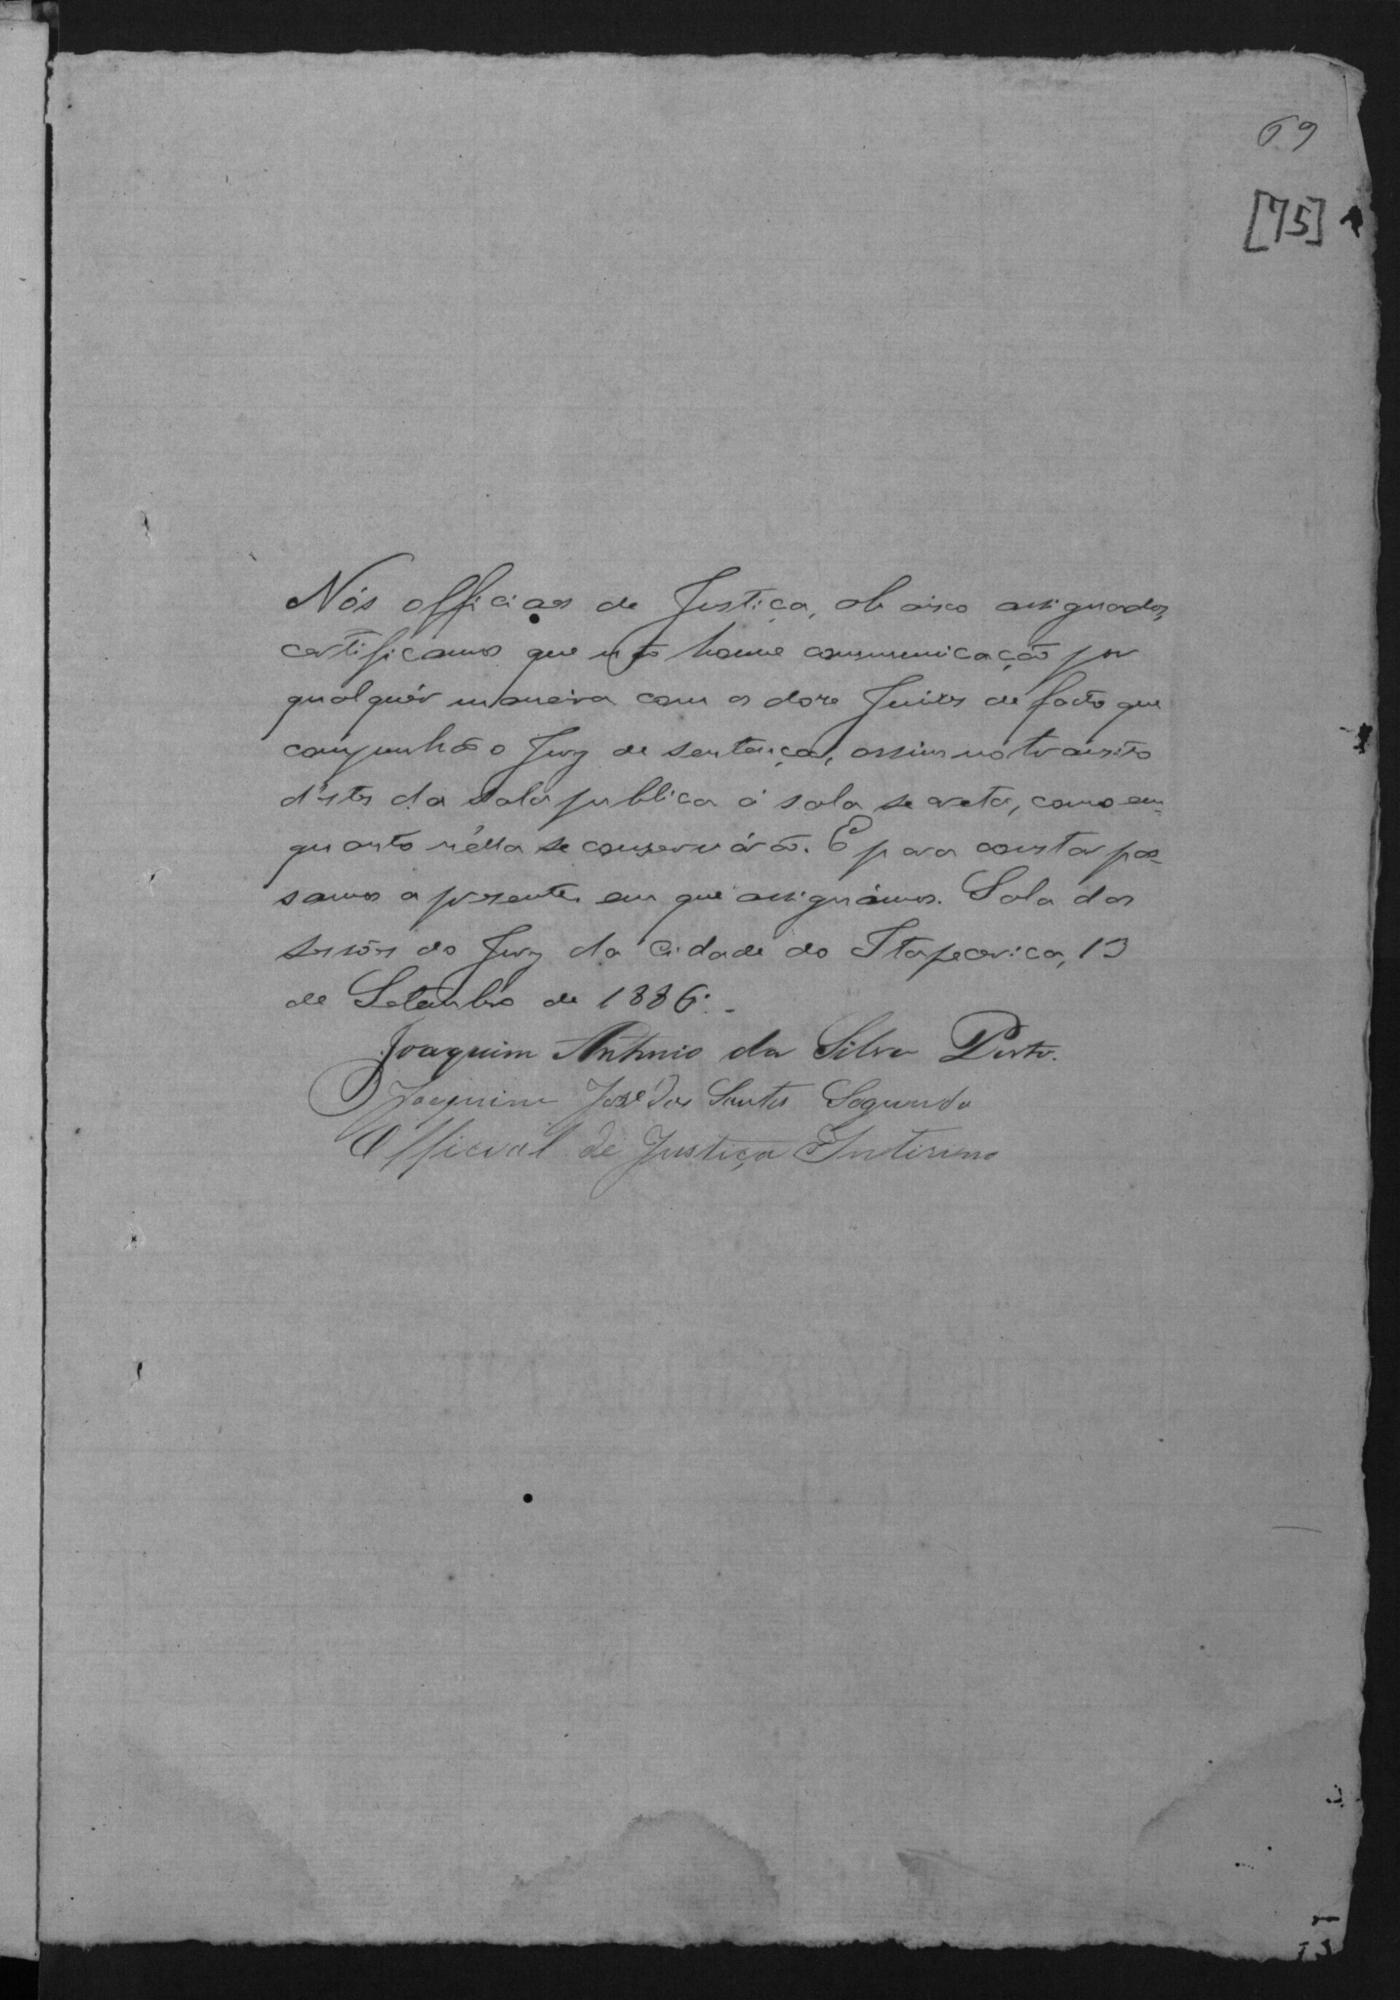 69
[75]
Nós officiaes de Justiça, abaixo assignados,
certificamos que não houve communicação por
qualquér maneira com os doze Juizes de facto que
compunhão o Jury de sentença, assim no transito
d'estes da sala publica á sala secreta, como em-
quanto n'élla se conservárão. E para constar pas-
samos a presente, em que assignámos. Sala das
sessões do Jury da Cidade do Itapecerica, 13
de Setembro de 1886.
Joaquim Antonio da Silva Porto.
Joaquim José dos Santos Segundo
Official de Justiça Interino